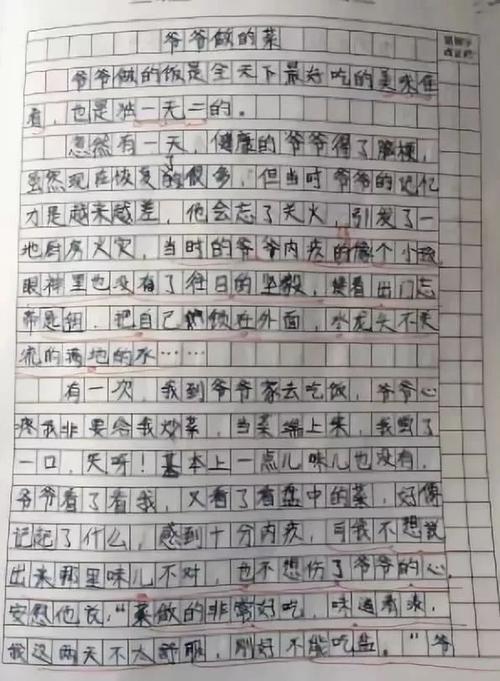 爷爷做的菜
爷爷做的饭是全天下最好吃的美味佳
肴，也是独一无二的。
忽然有一天，健康的爷爷得了脑梗，
虽然现在恢复了的很多，但当时爷爷的记忆
力是越来越差，他会忘了关火，引发了一
地厨房火灾，当时的爷爷内疚的像个小孩
眼神里也没有了往日的坚毅，接着出门忘
带钥匙，把自己锁在外面，水龙头不关
流的满地的水……
有一次，我到爷爷家去吃饭，爷爷心
疼我非要给我炒菜，当菜端上来，我尝了
一口，天呀！基本上一点儿味儿也没有，
爷爷看了看我，又看了看盘中的菜，好像
记起了什么，感到十分内疚，可我不想说
出来那里味儿不对，也不想伤了爷爷的心，
安慰他说：“菜做的非常好吃，味道
我这两天不太舒服，刚好不能吃盐。”爷